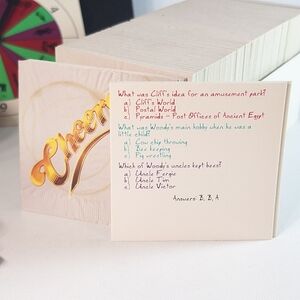 Cheers
What was Cliff's idea for an amusement park?
a) Cliff's World
b) Postal World
c) Pyramids - Post Offices of Ancient Egypt
What was Woody's main hobby when he was a
little child?
a) Cow chip throwing
b) Bee keeping
c) Pig wrestling
Which of Woody's uncles kept bees?
a) Uncle Fergie
b) Uncle Tim
c) Uncle Victor
Answers: B, B, A